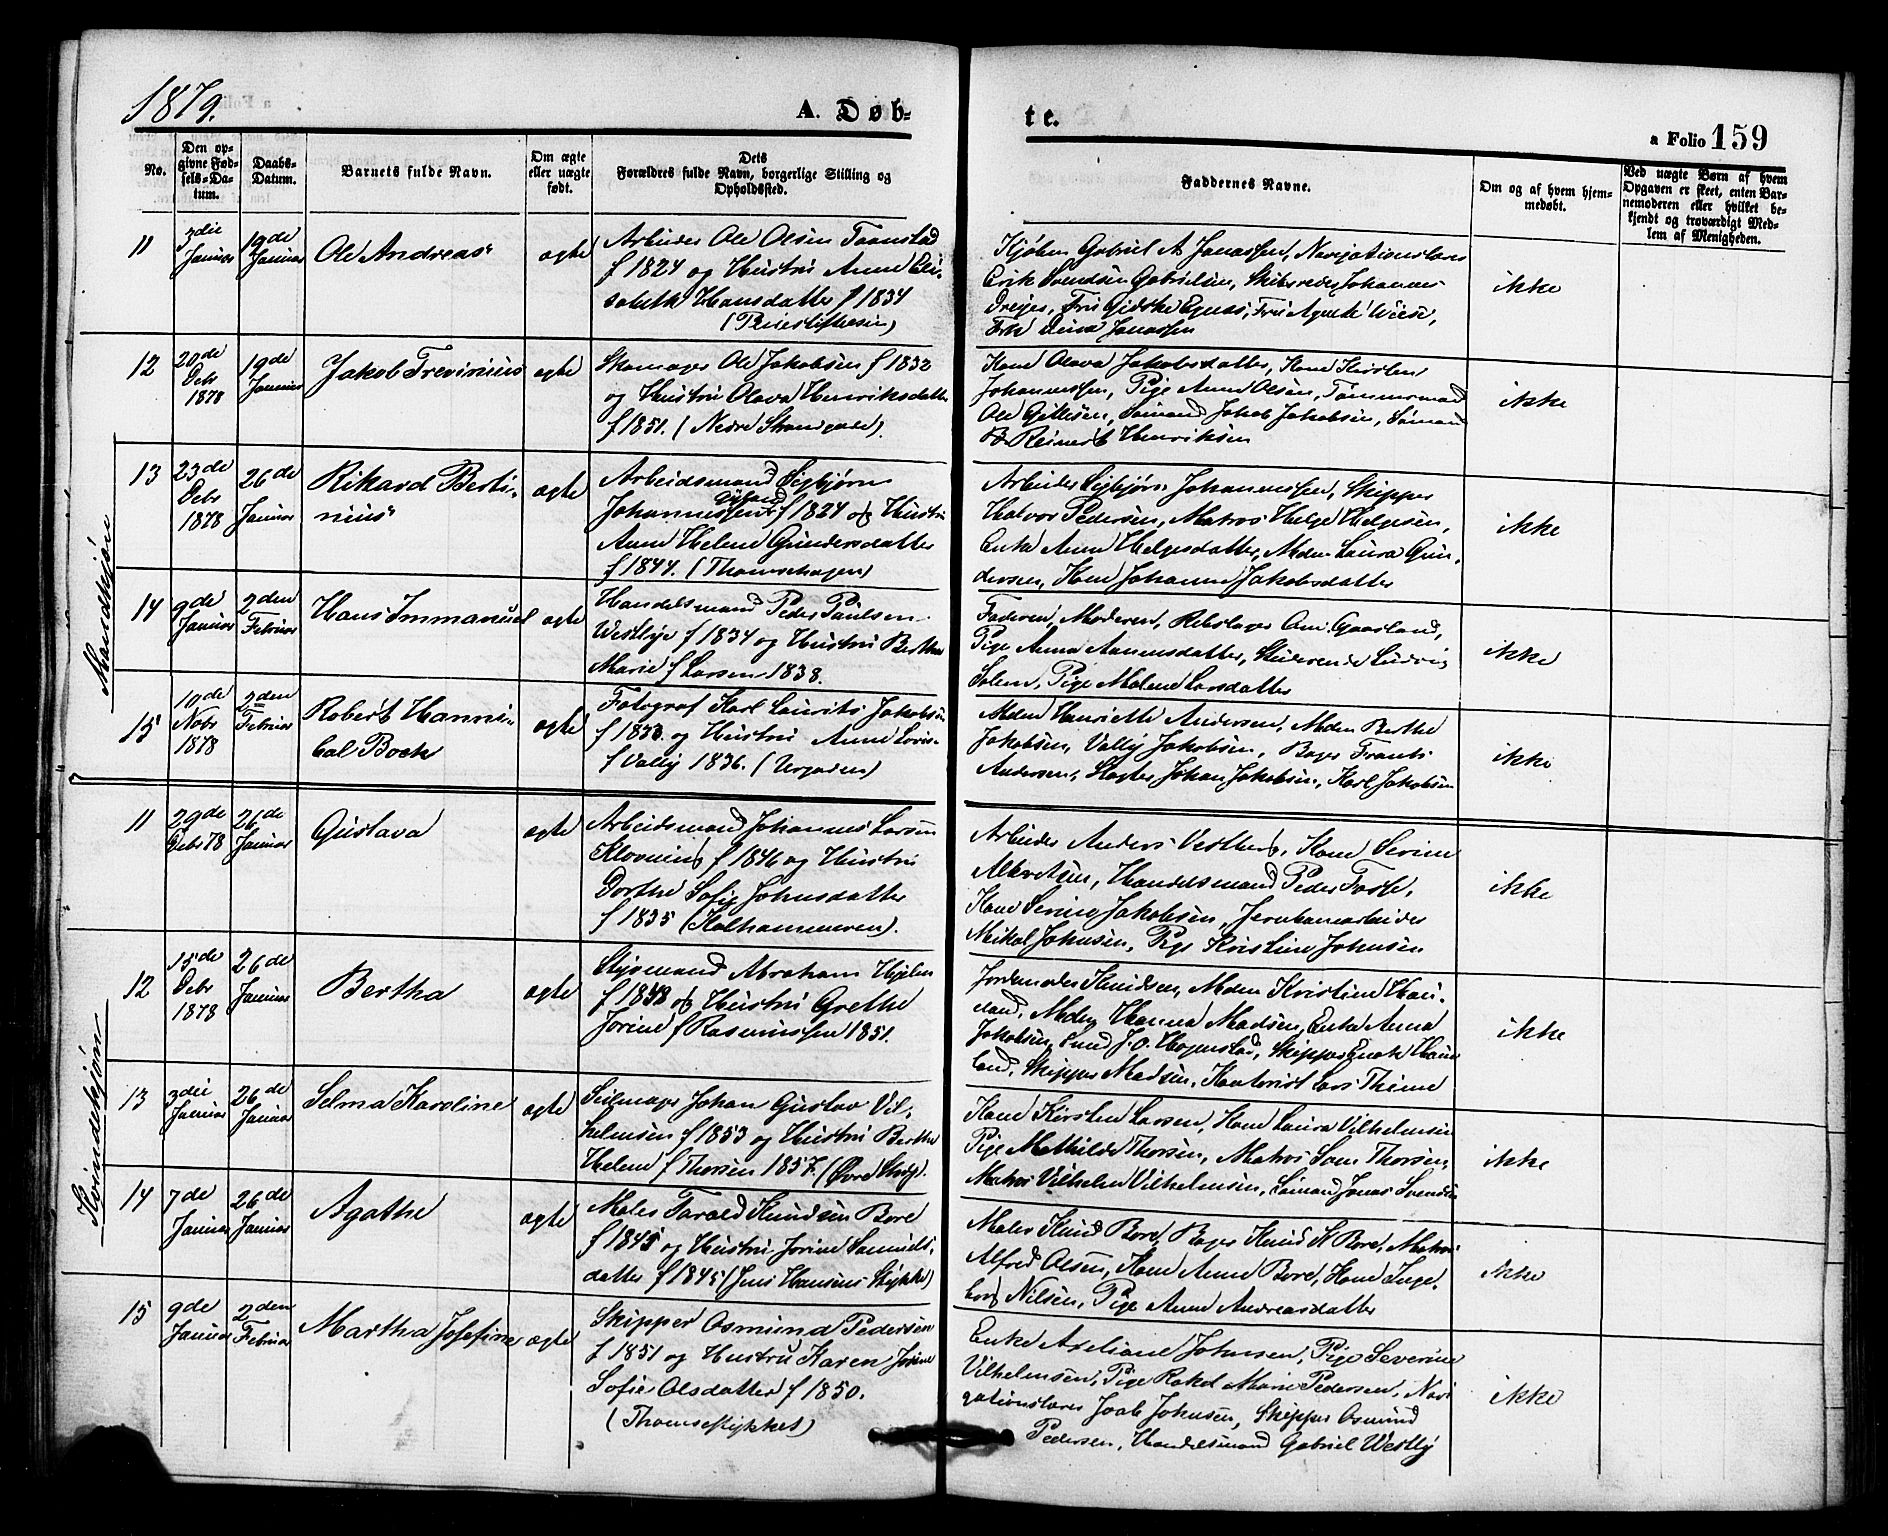 1879.
A. Døb-
te.
a Folio 159
No.
Den op-
givne Fød-
sels-Da-
tum.
Daabs-
Datum.
Barnets fulde Navn.
Om ægte
eller uægte
født.
Dets
Forældres fulde Navn, borgerlige Stilling og
Opholdssted.
Faddernes Navne.
Om og af hvem hjem-
medøbt.
Ved uægte Børn af hvem
Opgaven er skeet, enten Bar-
nemoderen eller hvilket be-
kjendt og troværdigt Med-
lem af Menigheden.
Mandkjøn
11
3die
Januar
19de
Januar
Ole Andreas
ægte
Arbeider Ole Olsen Taanstad
f 1824 og Hustru Anne Eli-
sabeth Hansdatter f 1834
Kjøbm Gabriel A Jonassen, Navigationslærer
Erik Svendsen Gabrielsen, Skibsreder Johannes
Dreyer, Fru Gidske Egnas, Fru Agathe Wiese,
Frk Lina Jonassen
ikke
12
20de
Debr
1878
19de
Januar
Jakob Trevinius
ægte
Skomager Ole Jakobsen f 1832
og Hustru Olava Henriksdatter
f 1851. (Nedre Strandgade).
Kone Olava Jakobsdatter, Kone Kirsten
Johannessen, Pige Anne Olsen, Tømmermand
Ole Gittesen, Sømand Jakob Jakobsen, Sømand
B. Reinert Henriksen
ikke
13
23de
Debr
1878
26de
Januar
Rikard Berti-
nius
ægte
Arbeidsmand Sigbjørn
Johannessen f 1824 og Hustru
Anne Helene Gundersdatter
f 1844. (Thomashagen)
Arbeider Sigbjørn Johannessen, Skipper
Halvor Pedersen, Matros Helge Helgesen,
Enke Anne Helgesdatter, Mdm Laura Gun-
dersen, Kone Johanne Jakobsdatter
ikke
14
9de
Januar
2den
Februar
Hans Immanuel
ægte
Handelsmand Peder Paulsen
Westlye f 1834 og Hustru Berthe
Marie f Larsen 1838.
Faderen, Moderen, Rebslager Om. Gaasland,
Pige Anna Aanensdatter, Studerende Ludvig
Salem, Pige Malene Larsdatter
ikke
15
10de
Nobr
1878
2den
Februar
Robert Hanni-
bal Boch
ægte
Fotograf Karl Laurits Jakobsen
f 1833 og Hustru Anne Lovise
f Vally 1836. (Urgaden)
Mdm Henriette Andersen, Mdm Berthe
Jakobsen, Vally Jakobsen, Bager Frants
Andersen, Slagter Johan Jakobsen, Karl Jakobsen
ikke
Kvindekjøn
11
29de
Debr 78
26de
Januar
Gustava
ægte
Arbeidsmand Johannes Larsen
Klovning f 1846 og Hustru
Dorthe Sofie Johnsdatter
f 1835 (Kalhammeren).
Arbeider Anders Vestbø, Kone Serine
Albretsen, Handelsmand Peder Tostb.
Kone Serine Jakobsen, Jernbanearbeider
Mikal Johnsen, Pige Kristine Johnsen
ikke
12
15de
Debr
1878
26de
Januar
Bertha
ægte
Styrmand Abraham Hjelm
f 1848 og Hustru Grethe
Jorine f Rasmussen 1851.
Jordemoder Knudsen, Mdm Kristine Hau-
land, Mdm Hanna Madsen, Enke Anna
Jakobsen, Smed J. O. Hogenstad, Skipper Enok Hau
land, Skipper Madsen, Kontorist Lars Thime
ikke
13
3die
Januar
26de
Januar
Selma Karoline
ægte
Seilmager Johan Gustav Vil-
helmsen f 1853 og Hustru Berthe
Helene f Thorsen 1857. (Øvre Strdg).
Kone Kirsten Larsen, Kone Laura Vilhelmsen
Pige Mathilde Thorsen, Matros Som Thorsen,
Matros Vilhelm Vilhelmsen, Sømand Jonas Svendsen
ikke
14
7de
Januar
26de
Januar
Agathe
ægte
Maler Tarald Knudsen Bore
f 1845 og Hustru Jorine Samuels-
datter f 1845 (Jens Hansens Stykke)
Maler Knud Bore, Bager Knud K Bore, Matros
Alfred Olsen, Kone Anne Bore, Kone Inge-
borg Nilsen, Pige Anne Andreasdatter
ikke
15
9de
Januar
2den
Februar
Martha Josefine
ægte
Skipper Osmund Pedersen
f 1851 og Hustru Karen Jorine
Sofie Olsdatter f 1850.
(Thomsestykket)
Enke Axeliane Johnsen, Pige Severine
Vilhelmsen, Pige Rakel Marie Pedersen, Navi
gationslærer Joab Johnsen, Skipper Osmund
Pedersen, Handelsmand Gabriel Westly
ikke